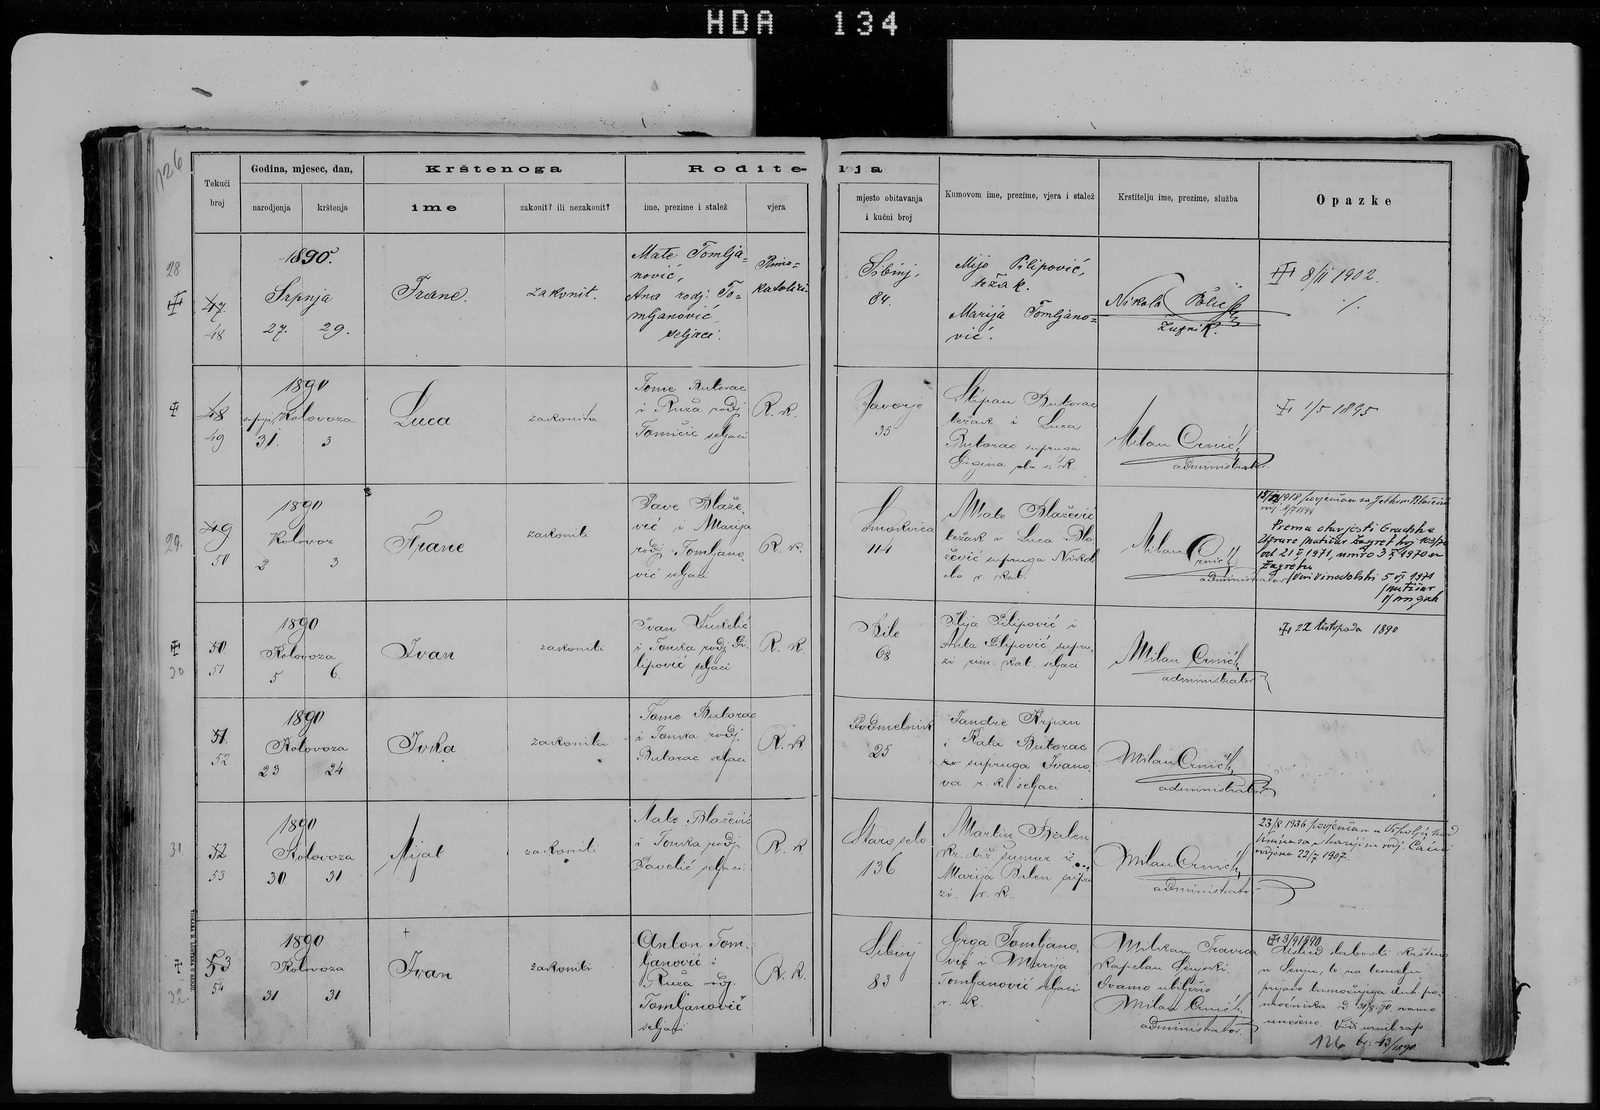 HDA 134
126
Tekući broj
Godina, mjesec, dan,
narodjenja
krštenja
Krštenoga
ime
zakonit? ili nezakonit?
Rodite-
lja
ime, prezime i stalež
vjera
mjesto obitavanja
i kućni broj
Kumovom ime, prezime, vjera i stalež
Krstitelju ime, prezime, služba
Opazke
28
47.
48
1890.
Srpnja
27. 29.
Frane.
zakonit.
Mate Tomlja-
nović,
Ana rodj. To-
mljanović
seljaci.
Rimo-
katolici.
Sibinj,
84.
Mijo Pilipović,
težak.
Marija Tomljano-
vić.
Nikola Polić
župnik.
8/II 1902.
48
49
1890
srpnja Kolovoza
31. 3
Luca
zakonita
Tome Butorac
i Ruža rodj
Tomičić seljaci
R. k.
Javorje
35
Stipan Butorac
težak i Luca
Butorac supruga
Milan Crnić
administrator
1/5 1895
29.
49
50
1890
Kolovoz
2 3
Frane
zakonit
Pave Blaže,
vić i Marija
rodj. Tomljano,
vić seljaci
R. k.
Smokvica
114
Mate Blažević
težak i Luca Bla
žević supruga
oba r. kat.
Milan Crnić
administrator
Prema obavjesti Gradske
Uprave matičar Zagreb
od 21 1971, umro 3 1970 u
Zagrebu
30
50
51
1890
Kolovoza
5 6
Ivan
zakonit
Ivan Vukelić
i Tonka rodj. Pi
lipović seljaci
R. k.
Bile
68
Ilija Pilipović i
Anta Pilipović supru,
zi rim. kat. seljaci
Milan Crnić
administrator
22 listopada 1890
51.
52
1890
Kolovoza
23 24
Ivka
zakonita
Tome Butorac
i Tonka rodj.
Butorac seljaci
R. k
Podmelnik
25
Jandre Krpan
i Kata Butorac
supruga Ivano,
va r. k. seljaci
Milan Crnić
administrator
31
52
53
1890
Kolovoza
30 31
Mijat
zakonit
Mate Blažević
i Tonka rodj
Pavelić seljaci
R. k
Staro selo
136
Martin Balen
kr. drž šumar i
Marija Balen supru
zi r. k.
Milan Crnić
administrator
23/8 1936 vjenčan u
rodjena 22/7 1907.
32
53
54
1890
Kolovoza
31 31
Ivan
zakonit
Anton Tom,
ljanović i
Ruža rodj.
Tomljanović
seljaci
R. k.
Sibinj
83
Grga Tomljano,
vić i Marija
Tomljanović seljaci
r. k.
kapelan Senjski
Ovamo ubilježio
Milan Crnić
administrator
3/9 1890
Usled slabosti kršten
u Senju, to na temelju
prijave tamošnjega duh. po-
moćnika d 31/8. 90 ovamo
unešeno
br. 43/1890
126